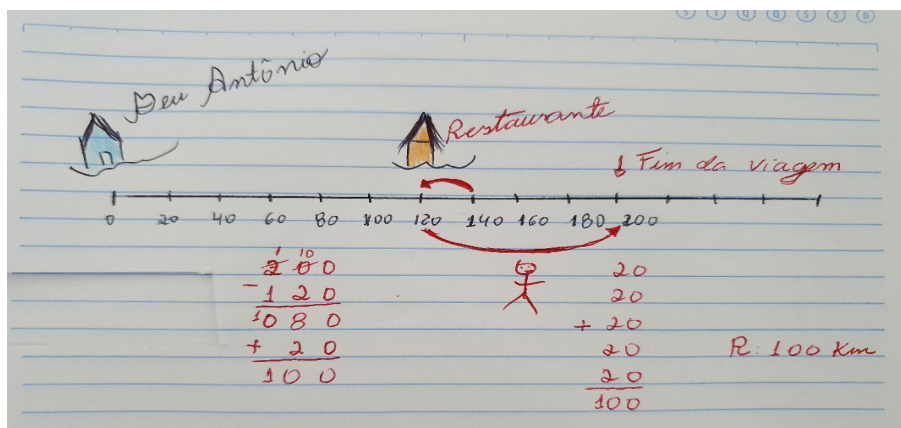 S T Q Q S S D
Seu Antônio
Restaurante
Fim da viagem
0 20 40 60 80 100 120 140 160 180 200
1 10
200
- 120
1080
+ 20
100
20
20
+ 20
20
20
100
R: 100 Km